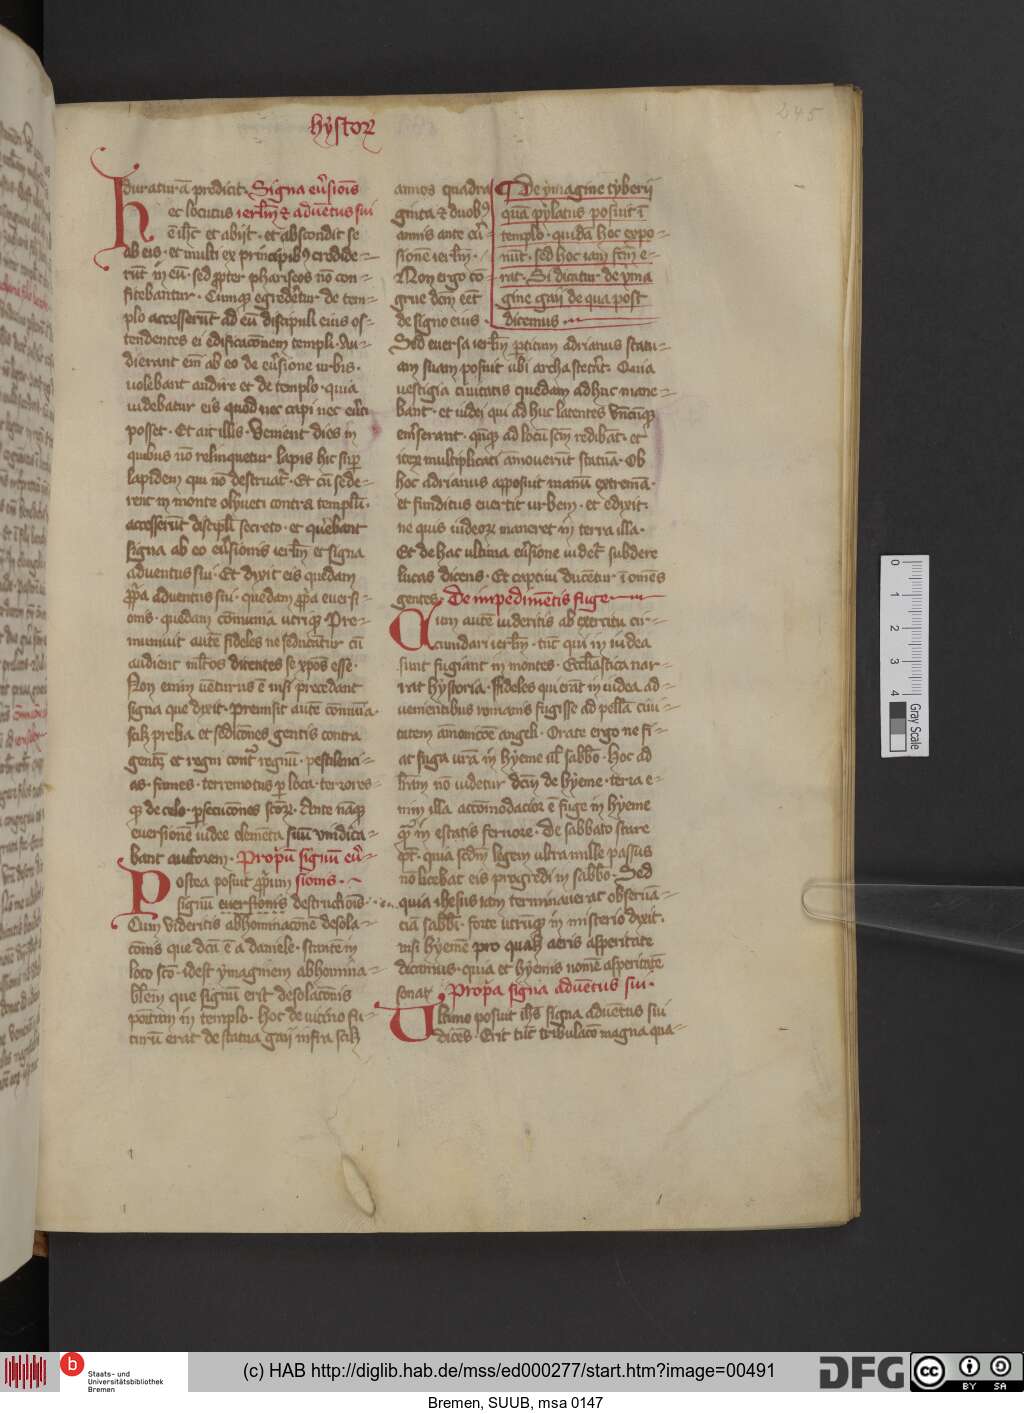 hÿstor
245
duraturā predicit. Signa eu͛sionis
ec locutus ierl̄m ⁊ aduētus sui
ē ih̄c et abijt. et abscondit se
ab eis. et multi ex principibꝰ credide-
rūt in eū. sed ꝓpter phariseos nō con-
fitebantur. Cumqꝫ egrederetur de tem-
plo accesserūt ad eū discipuli eius os-
tendentes ei edificacōnem templi. Au-
dierant em̄ ab eo de eu͛sione urbis.
uolebant audire et de templo. quia
uidebatur eis quod nec capi nec eu͛ti
posset. Et ait illis. Venient dies in
quibus nō relinquetur lapis hic suꝑ
lapidem qui nō destruat͛. Et cū sede-
rent in monte olyueti contra templū.
accesserūt discipuli secreto. et querebant
signa ab eo eu͛sionis ierl̄m et signa
aduentus sui. Et dixit eis quedam
ꝓp͛a aduentus sui. quedam ꝓp͛a euersi-
onis. quedam cōmunia utriqꝫ Pre-
muniuit autē fideles ne seducātur cū
audient ml̄tos dicentes se xp̄os esse.
Non enim uēturus ē nisi precedant
signa que dixit. Premisit autē cōmunia.
scilꝫ prelia et sedicōnes gentis contra
gentē et regni cont͛ regnū. pestilenci-
as. fames. terremotus ꝑ loca. terrores-
qꝫ de celo. ꝑsecucōnes sc̄orꝝ. Ante nāqꝫ
euersionē iudee elemēta suū vindica-
bant auctorem. Propriū signū eu͛-
ostea posuit ꝓprium sionis.
signū euersionis destructiōis.
Cum videritis abhominacōnē desola-
cōnis que dc̄a ē a daniele. stantē in
loco sc̄o. idest ymaginem abhomina-
bl̄em que signū erit desolacōnis
ponitam in templo. Hoc de uicino fu-
turū erat de statua gaij infra scilꝫ
annos quadra
ginta ⁊ duobꝰ
annis ante eu͛-
sionē ierl̄m.
Non ergo cō-
grue dc̄m eēt
de signo eius.
De ymagine tyberij
quā pylatus posuit ī
templo. quidā hoc expo-
nūt. sed hoc iam fc̄m e-
rat. Si dicatur de yma
gine gaij de qua post
dicemus.
Sed euersa ierl̄m ꝑtitum adrianus statu-
am suam posuit ubi archa stetert. Quia
vestigia ciuitatis quedam adhuc mane-
bant. et iudei qui ad huc latentes vn̄cūqꝫ
em̄serant. qn̄qꝫ ad locū sc̄m redibāt. et
iterꝝ multiplicati amouerūt statuā. Ob
hoc adrianus apposuit manū extremā.
et funditus euertit urbem. et edixit.
ne quis iudeorꝝ maneret in terra illa.
Et de hac ultima eu͛sione uidet͛ subdere
lucas dicens. Et captiui ducētur ī omēs
gentes. De impedimētis fuge
Cum autē uideritis ab exercitu cir-
cumdari ierl̄m. tūc qui in iudea
sunt fugiant in montes. Eccl̄iastica nar-
rat hystoria. fideles qui erāt in iudea ad-
uenientibus romanis fugisse ad pellā ciui-
tatem amonicōe angeli. Orate ergo ne fi-
at fuga vr̄a in hyeme ul̓ sabb̄o. Hoc ad
lr̄am nō uidetur dc̄m de hyeme. tercia e-
nim illa accōmodacior ē fuge in hyeme
qꝫ in estatis feruore. De sabbato stare
pt̄. quia sc̄dm legem ultra mille passus
nō licebat eis progredi in sabb̄o. Sed
quia ihesus iam terminauerat obseruā-
ciā sabb̄i. forte utrūqꝫ in misterio dixit.
nisi hyemē pro qualꝫ aeris asperitate
dicamus. quia et hyemis nomē asperitatē
sonat. Propria signa aduētus sui.
Vltimo posuit ih̄s signa aduētus sui
dicēs. Erit tūc tribulaco magna qua-
0
1
2
3
4
Gray Scale
b
Staats- und
Universitätsbibliothek
Bremen
(c) HAB http://diglib.hab.de/mss/ed000277/start.htm?image=00491
DFG
cc
BY SA
Bremen, SUUB, msa 0147